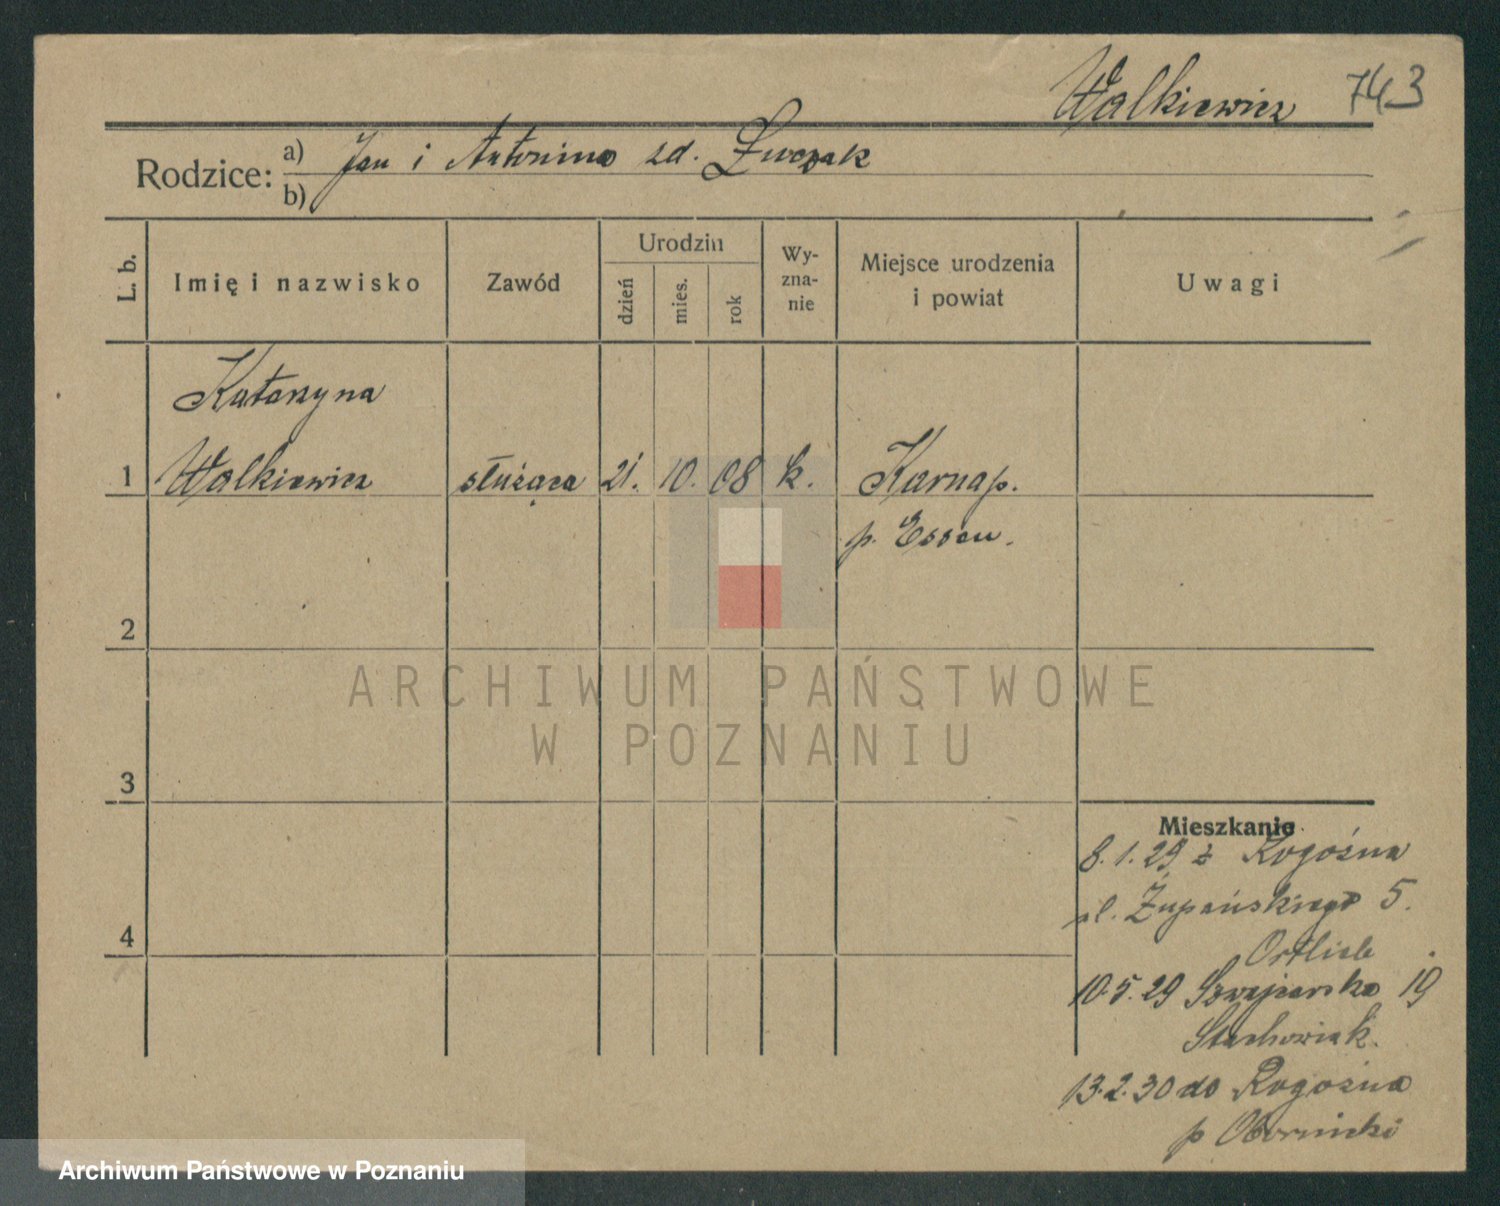 Walkiewicz 743
Rodzice: a) Jan i Antonina zd. Łuczak
b)
L. b.
Imię i nazwisko
Zawód
Urodzin
dzień
mies.
rok
Wy-
zna-
nie
Miejsce urodzenia
i powiat
Uwagi
Katarzyna
1 Walkiewicz służąca 21. 10. 08 k. Karnap.
p. Essen.
2
3
4
ARCHIWUM PAŃSTWOWE
W POZNANIU
Mieszkanie
8.1.29 z Rogoźna
ul. Żupańskiego 5.
Ortlieb
10.5.29 Szwajcarska 19
Stachowiak.
13.2.30 do Rogoźna
p Obornicki
Archiwum Państwowe w Poznaniu